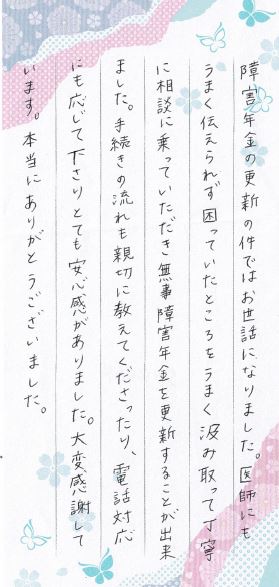 障害年金の更新の件ではお世話になりました。医師にも
うまく伝えられず困っていたところをうまく汲み取って丁寧
に相談に乗っていただき無事障害年金を更新することが出来
ました。手続きの流れも親切に教えてくださったり、電話対応
にも応じて下さりとても安心感がありました。大変感謝して
います。本当にありがとうございました。